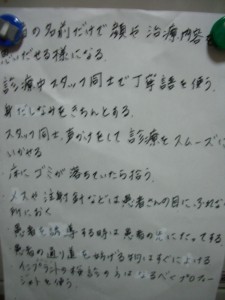 の名前だけで顔や治療内容を
思いだせる様になる。
診療中スタッフ同士で丁寧語を使う。
身だしなみをきちんとする。
スタッフ同士声かけをして診療をスムーズに
いかせる
・床にゴミが落ちていたら拾う。
・メスや注射針などは患者さんの目に
所におく
・患者を誘導する時は患者の先にたってする
・患者の通り道を妨げる時はすぐによける
インプラントの
を使う